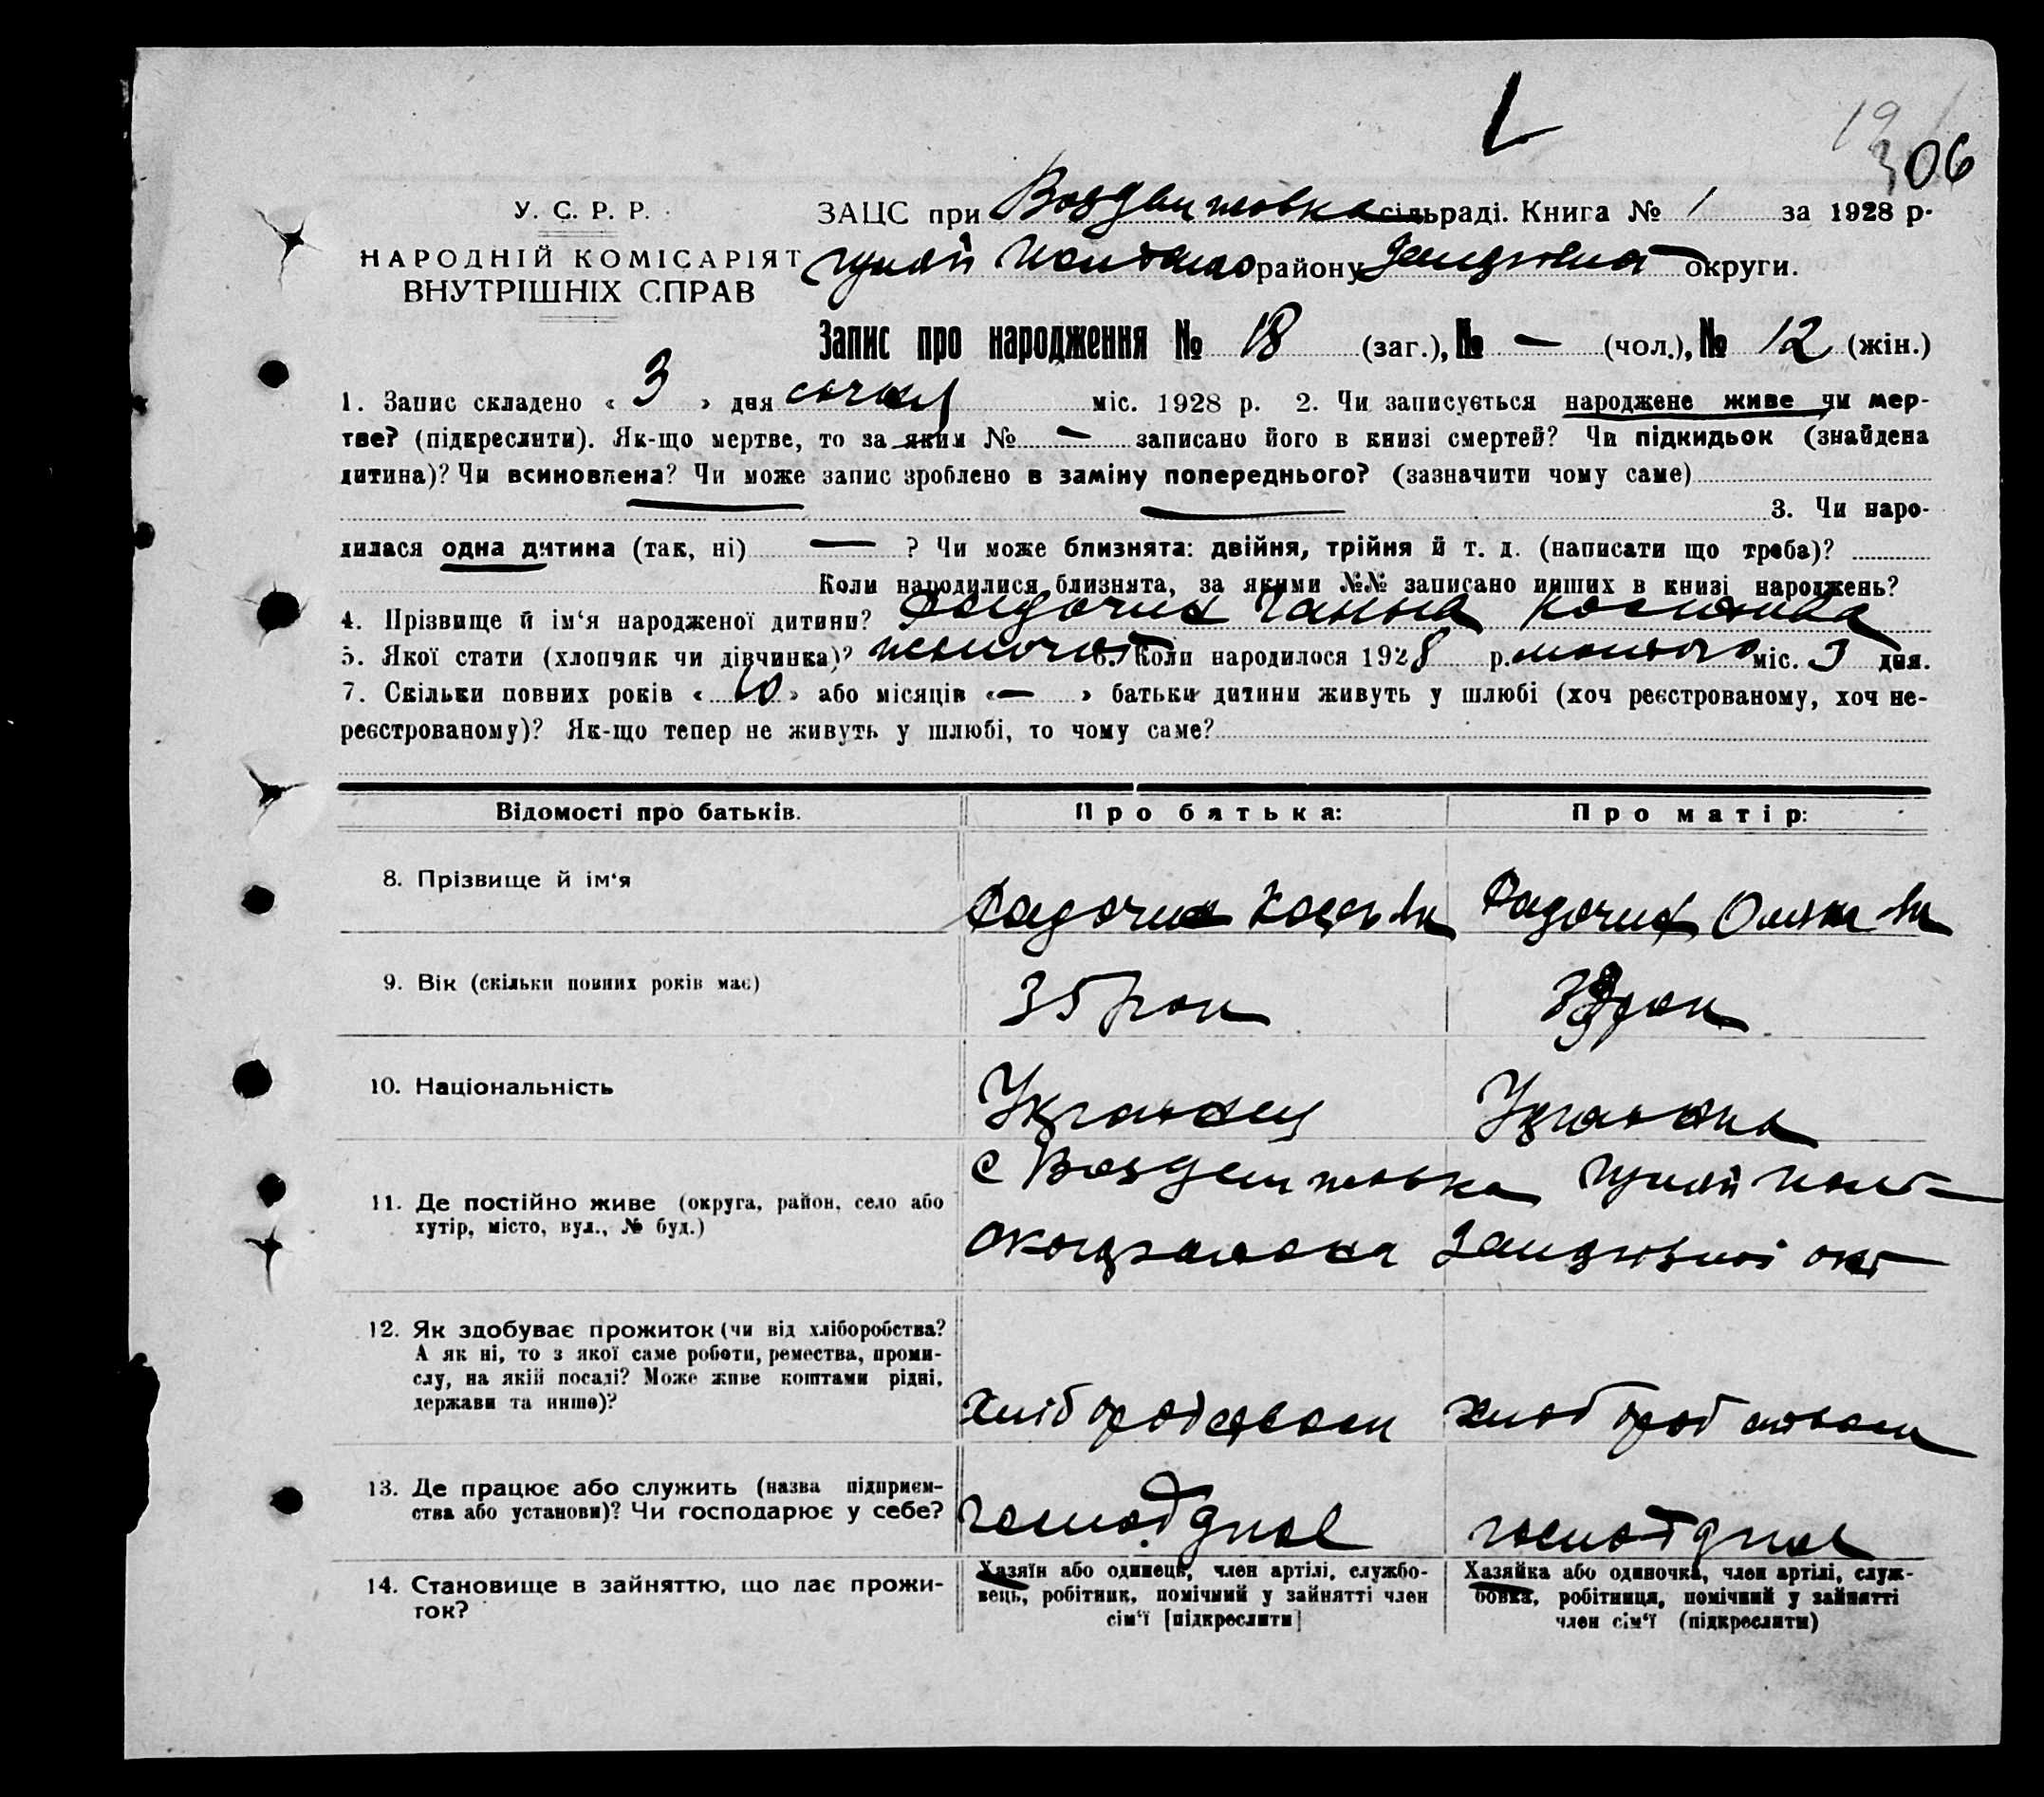 19
306
У. С. Р. Р.
НАРОДНІЙ КОМІСАРІЯТ
ВНУТРІШНІХ СПРАВ
ЗАЦС при Воздвижовка сільраді. Книга № 1 за 1928 р.
Гуляй району округи.
Запис про народження № 18 (заг.), № — (чол.), № 12 (жін.)
1. Запис складено « 3 » дня міс. 1928 р. 2. Чи записується народжене живе чи мер-
тве? (підкреслити). Як-що мертве, то за яким № — записано його в книзі смертей? Чи підкидьок (знайдена
дитина)? Чи всиновлена? Чи може запис зроблено в заміну попереднього? (зазначити чому саме)
3. Чи наро-
дилася одна дитина (так, ні) — ? Чи може близнята: двійня, трійня й т. д. (написати що треба)?
Коли народилися близнята, за якими №№ записано инших в книзі народжень?
4. Прізвище й ім'я народженої дитини? Ганна
5. Якої стати (хлопчик чи дівчинка)? 6. Коли народилося 1928 р. міс. 3 дня.
7. Скільки повних років « 10 » або місяців « — » батьки дитини живуть у шлюбі (хоч реєстрованому, хоч не-
реєстрованому)? Як-що тепер не живуть у шлюбі, то чому саме?
Відомості про батьків. Про батька: Про матір:
8. Прізвище й ім'я
9. Вік (скільки повних років має) 35 рок рок
10. Національність Українец Українка
11. Де постійно живе (округа, район, село або
хутір, місто, вул., № буд.)
с Воздвижовка Гуляй
12. Як здобуває прожиток (чи від хліборобства?
А як ні, то з якої саме роботи, ремества, проми-
слу, на якій посаді? Може живе коштами рідні,
держави та инше)?
хліборобством хліборобством
13. Де працює або служить (назва підприєм-
ства або установи)? Чи господарює у себе?
14. Становище в зайняттю, що дає прожи-
ток?
Хазяїн або одинець, член артілі, службо-
вець, робітник, помічний у зайнятті член
сім'ї [підкреслити]
Хазяйка або одиночка, член артілі, служ-
бовка, робітниця, помічний у зайнятті
член сім'ї (підкреслити)